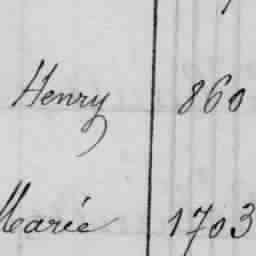 Henry 860
Mariée 1703